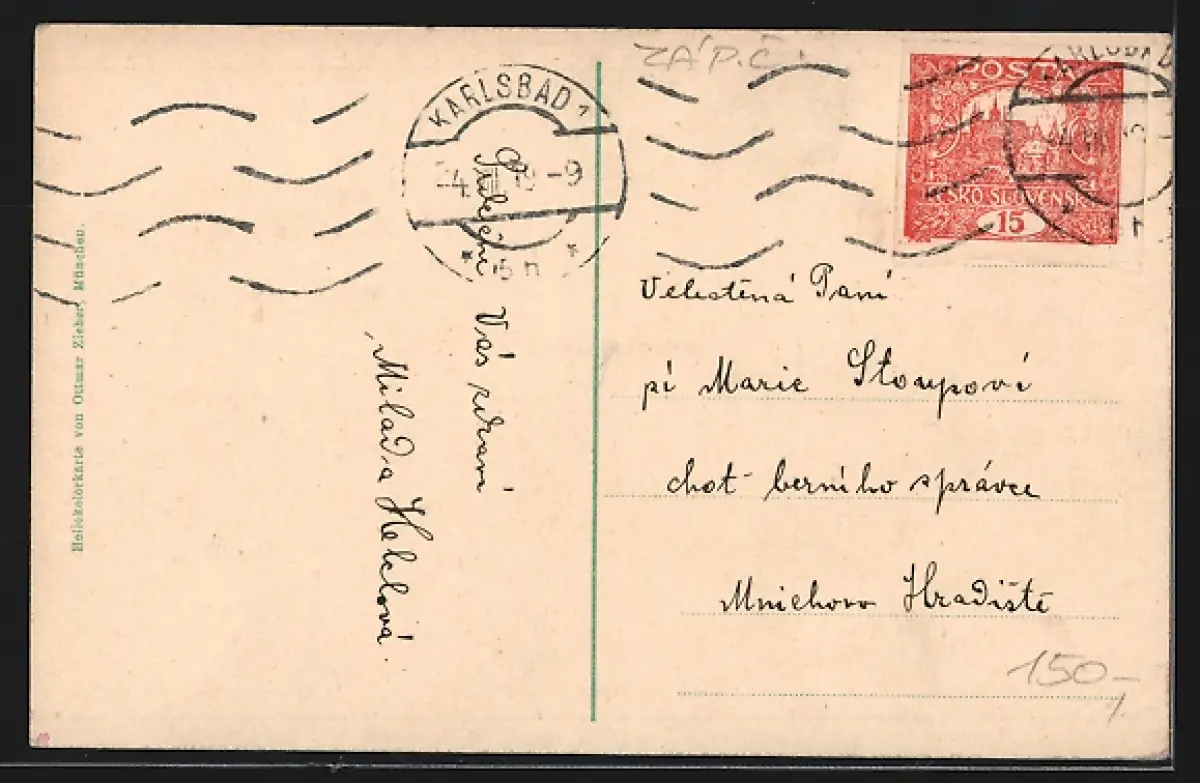 Heliokolorkarte von Ottmar Zieher, München.
KARLSBAD 1
Srdečně
Vás zdraví
Milada Helclová.
ZÁP.Č.
POŠTA
ČESKO-SLOVENSKÁ
15
Velectěná Paní
pí Marie Stoupoví
choť berního správce
Mnichovo Hradiště
150-